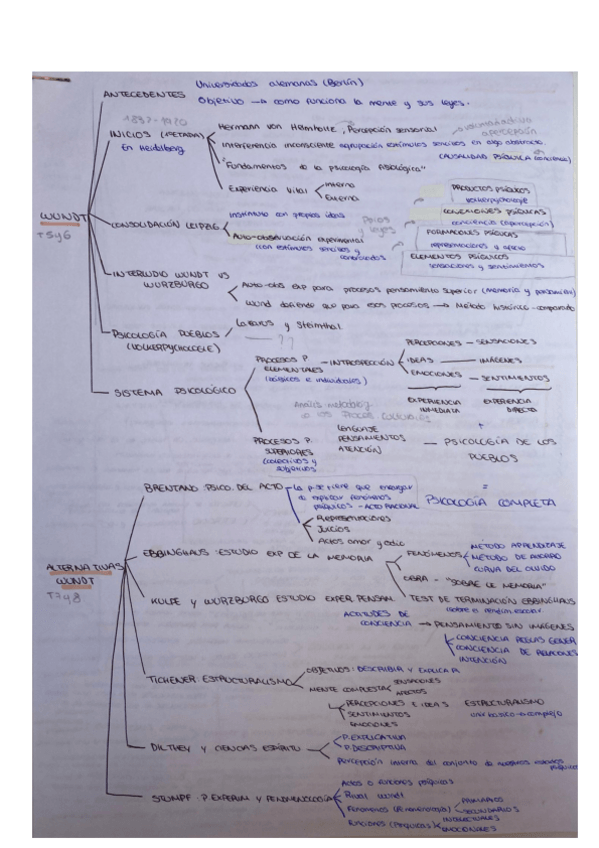 Universidades alemanas (Berlín)
ANTECEDENTES
Objetivo → como funciona la mente y sus leyes.
INICIOS (1ª ETAPA)
En Heidelberg
Hermann von Helmholtz, Percepción sensorial
Interferencia inconsciente agrupación estímulos sencillos en algo abstracto.
CAUSALIDAD PSÍQUICA
"Fundamentos de la psicología fisiológica"
Experiencia Vital
Interna
Externa
WUNDT
T5y6
CONSOLIDACIÓN LEIPZIG
Instituto con propias ideas
Auto-observación experimental
(con estímulos sencillos y controlados)
y leyes
PRODUCTOS PSÍQUICOS
CONEXIONES PSÍQUICAS
conciencia (apercepción)
FORMACIONES PSÍQUICAS
representaciones y afecto
ELEMENTOS PSÍQUICOS
sensaciones y sentimientos
INTERLUDIO WUNDT VS
WURZBURGO
Auto-obs exp para procesos pensamiento superior (memoria y pensamiento)
Wund defiende que para esos procesos → Método histórico-comparado
PSICOLOGÍA PUEBLOS
Lazarus y Steinthal
SISTEMA PSICOLÓGICO
PROCESOS P
ELEMENTALES
→ INTROSPECCIÓN
PERCEPCIONES - SENSACIONES
IDEAS — IMÁGENES
EMOCIONES — SENTIMIENTOS
EXPERIENCIA
INMEDIATA
EXPERIENCIA
DIRECTO
PROCESOS P.
SUPERIORES
(colectivos y
subjetivos)
LENGUAJE
PENSAMIENTOS
ATENCIÓN
— PSICOLOGÍA DE LOS
PUEBLOS
=
PSICOLOGÍA COMPLETA
BRENTANO: PSICO. DEL ACTO
La psi tiene que encargar
de explicar fenómenos
psíquicos - ACTO RACIONAL
Representaciones
Juicios
Actos amor y odio
ALTERNATIVAS
WUNDT
T7y8
EBBINGHAUS: ESTUDIO EXP DE LA MEMORIA
FENÓMENOS
MÉTODO APRENDIZAJE
MÉTODO DE AHORRO
CURVA DEL OLVIDO
OBRA - "SOBRE LA MEMORIA"
TEST DE TERMINACIÓN EBBINGHAUS
KULPE Y WURZBURGO ESTUDIO EXPER. PENSAM.
ACTITUDES DE
CONCIENCIA
→ PENSAMIENTO SIN IMÁGENES
CONCIENCIA REGLAS GENER
CONCIENCIA DE RELACIONES
INTENCIÓN
TICHENER: ESTRUCTURALISMO
OBJETIVOS: DESCRIBIR Y EXPLICAR
MENTE COMPUESTA
SENSACIONES
AFECTOS
PERCEPCIONES E IDEAS
SENTIMIENTOS
EMOCIONES
ESTRUCTURALISMO
DILTHEY Y CIENCIAS ESPÍRITU
P. EXPLICATIVA
P. DESCRIPTIVA
Percepción interna del conjunto de nuestros estados psíquicos
STUMPF: P. EXPERIM Y FENOMENOLOGÍA
Actos o funciones psíquicas
Rival Wundt
Fenómenos (Fenomenología)
PRIMARIOS
SECUNDARIOS
Funciones (Psíquicas)
INTELECTUALES
EMOCIONALES